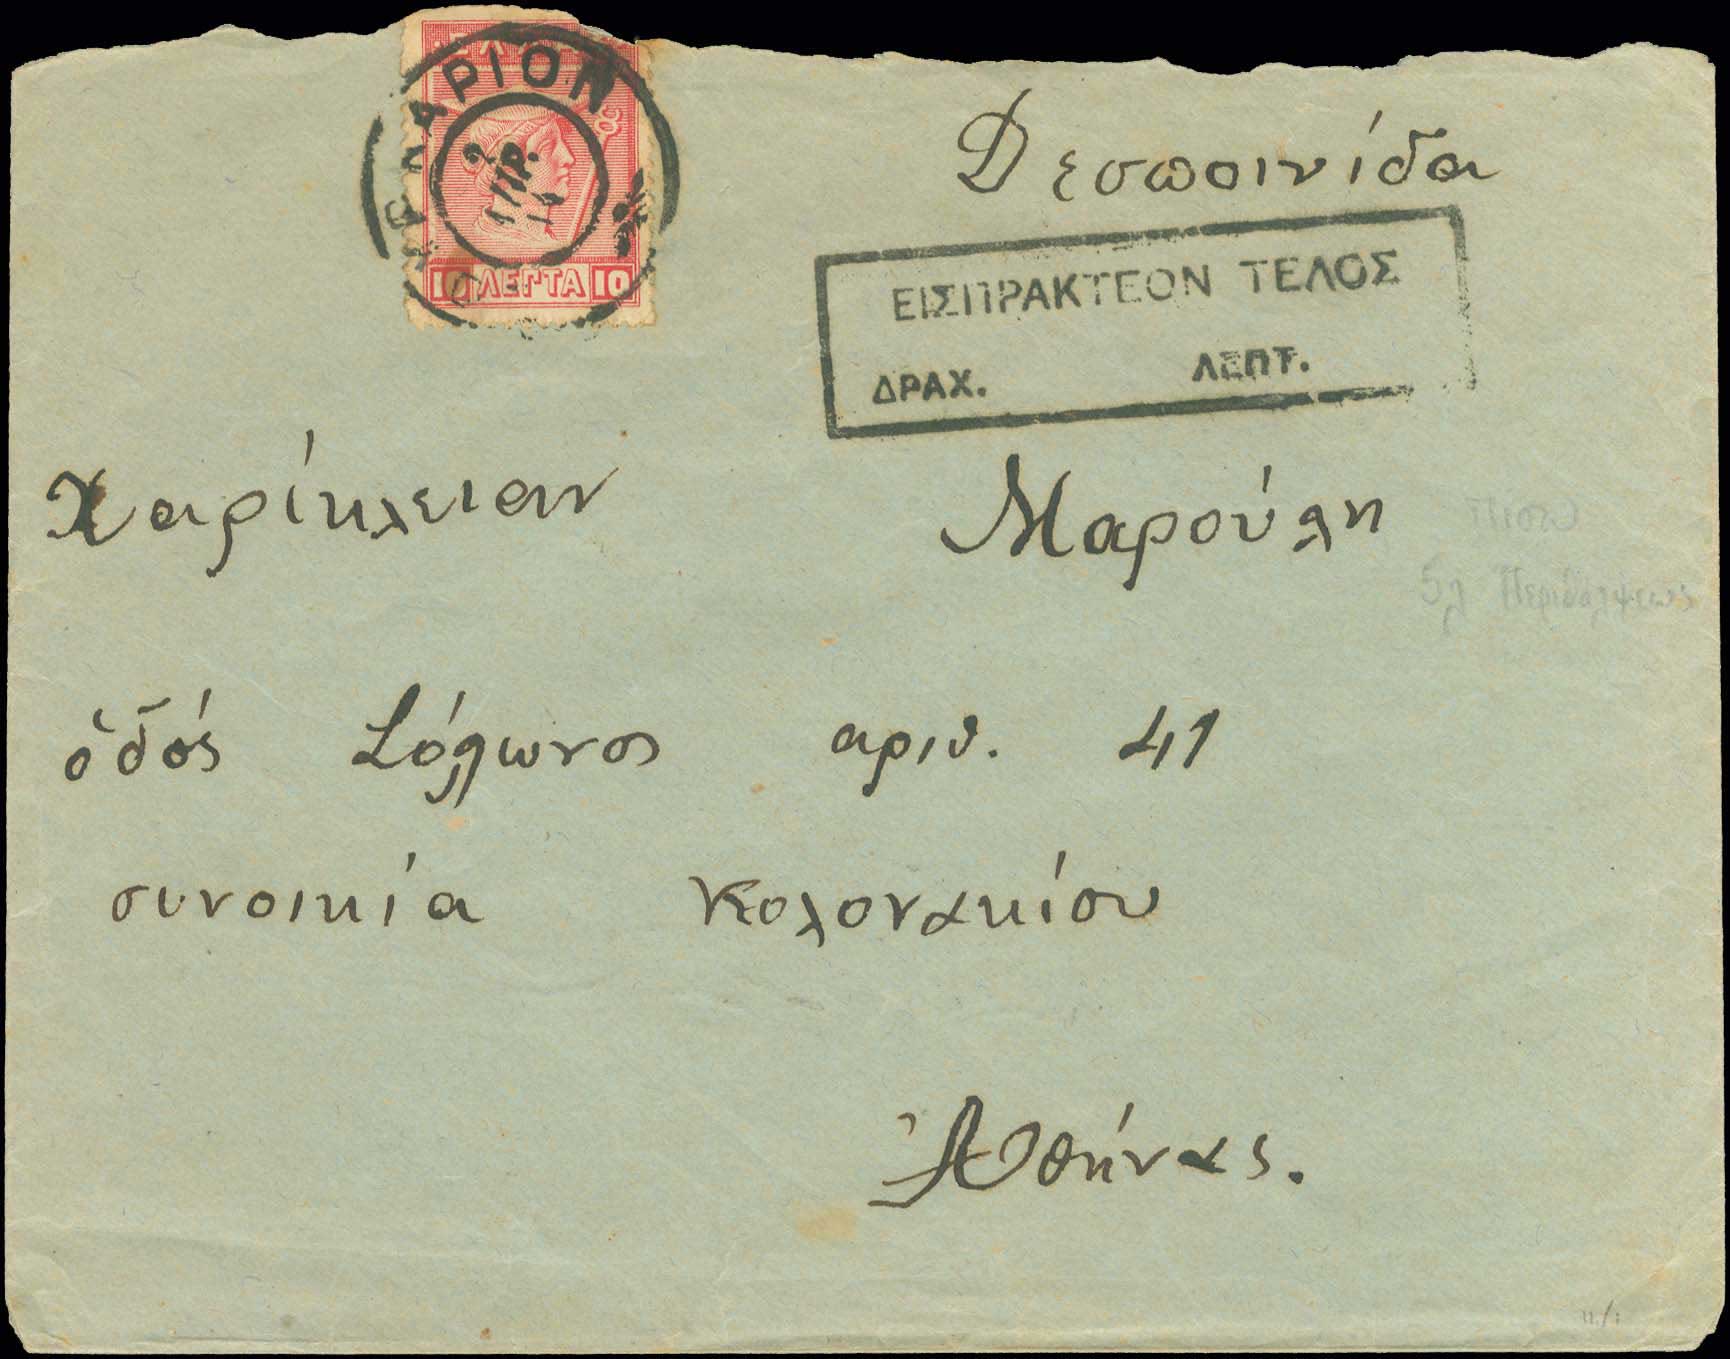 10 ΛΕΠΤΑ 10
2 ΑΠΡ. 14
Δεσποινίδα
ΕΙΣΠΡΑΚΤΕΟΝ ΤΕΛΟΣ
ΔΡΑΧ. ΛΕΠΤ.
Χαρίκλειαν Μαρούλη
πίσω
5λ Περιθάλψεως
ὁδός Σόλωνος αριθ. 41
συνοικία Κολονακίου
Ἀθήνας.